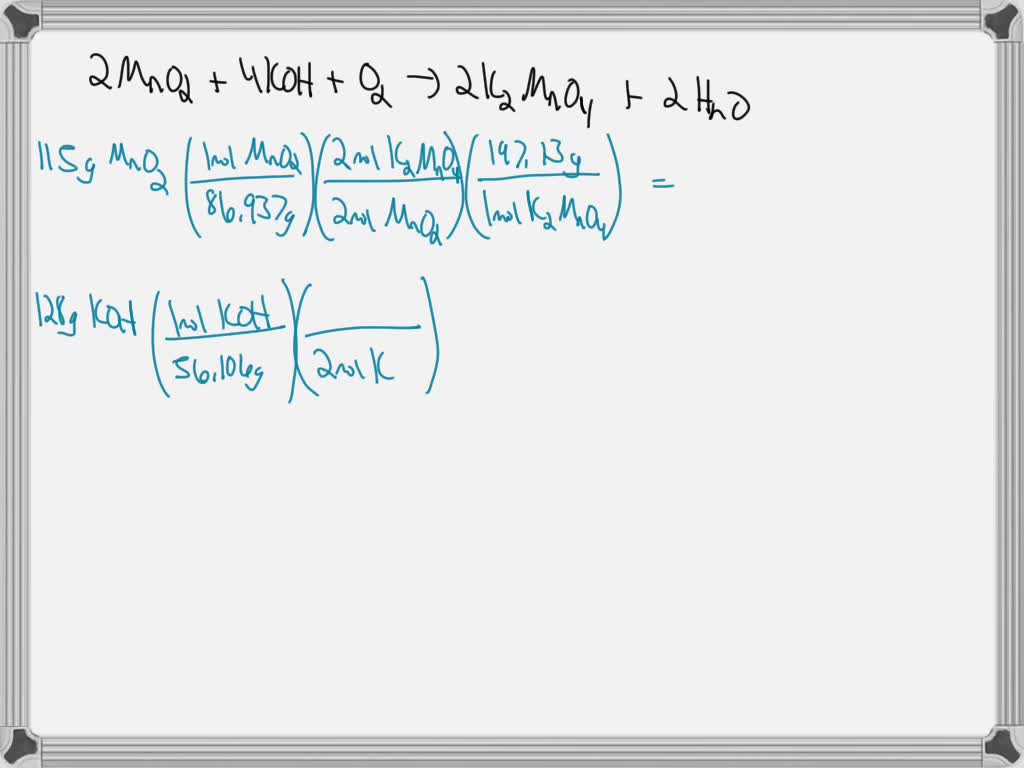 2MnO2 + 4KOH + O2 → 2K2MnO4 + 2H2O
115g MnO2 (1mol MnO2 / 86.937g)(2mol K2MnO4 / 2mol MnO2)(197.13g / 1mol K2MnO4) =
128g KOH (1mol KOH / 56.106g)( / 2mol K )